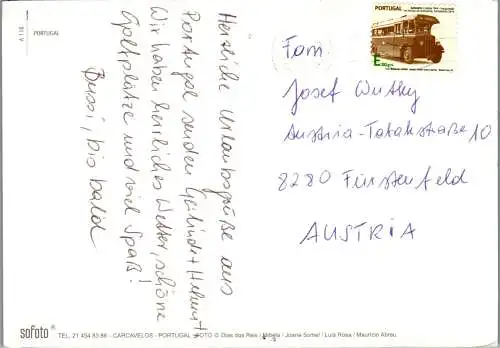 A 138
PORTUGAL
Herzliche Urlaubsgrüße aus
Portugal senden Gerlinde + Helmut
Wir haben herrliches Wetter, schöne
Golfplätze und viel Spaß!
Bussi, bis bald
PORTUGAL
E 20 grs
Fam.
Josef Wutky
Austria-Tabakstraße 10
8280 Fürstenfeld
AUSTRIA
sofoto®
TEL. 21 454 83 86 - CARCAVELOS - PORTUGAL - FOTO © Dias dos Reis / Mibela / Joana Somel / Luís Rosa / Maurício Abreu